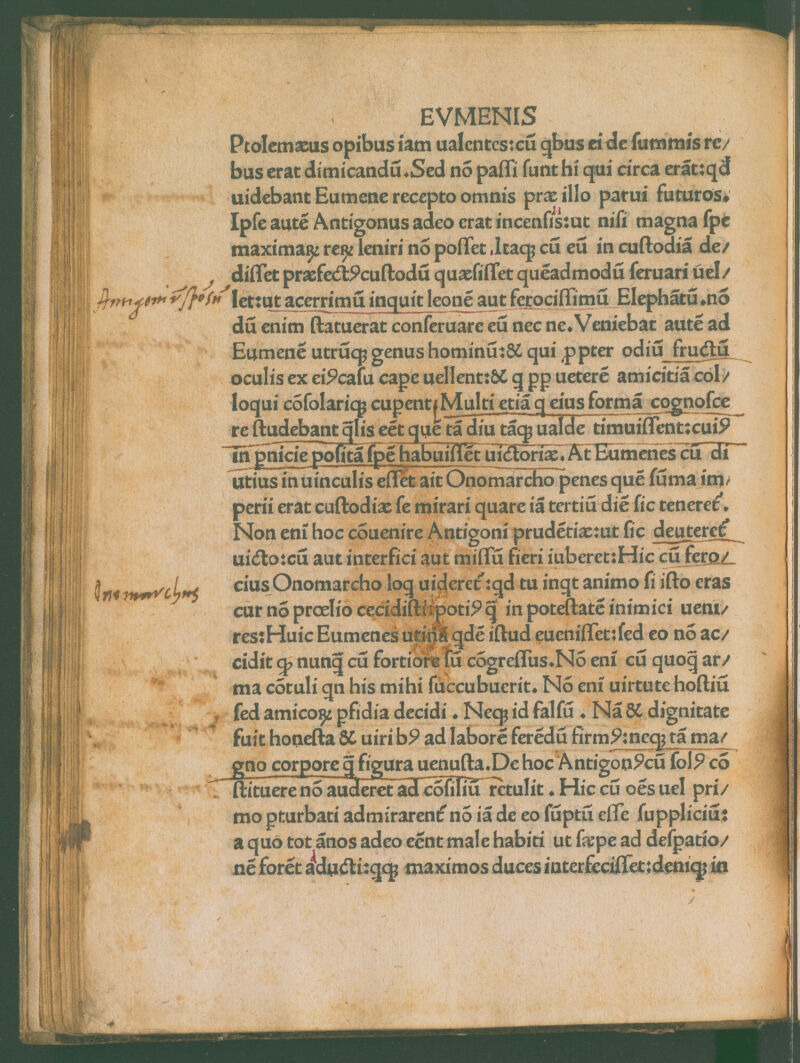 EVMENIS
Ptolemæus opibus iam ualentes:cū qbus ei de ſummis re/
bus erat dimicandū.Sed nō paſſi ſunt hi qui circa erāt:qđ
uidebant Eumene recepto omnis præ illo parui futuros.
Ipſe autē Antigonus adeo erat incenſis:ut niſi magna ſpe
maximaꝝ reꝝ leniri nō poſſet.Itaqꝫ cū eū in cuſtodiā de/
diſſet præfectꝰcuſtodū quæſiſſet quēadmodū ſeruari uel/
Antigoni
let:ut acerrimū inquit leonē aut ferociſſimū Elephātū.nō
dū enim ſtatuerat conſeruare eū nec ne.Veniebat autē ad
Eumenē utrūqꝫ genus hominū:& qui ꝓpter odiū fructū
oculis ex eiꝰcaſu cape uellent:& q pp ueterē amicitiā col/
loqui cōſolariqꝫ cupent:Multi etiā q eius formā cognoſce
re ſtudebant q̄lis eēt quē tā diu tāqꝫ ualde timuiſſent:cuiꝰ
in pnicie poſitā ſpē habuiſſēt uictoriæ.At Eumenes cū di
utius in uinculis eſſet ait Onomarcho penes quē ſūma im/
perii erat cuſtodiæ ſe mirari quare iā tertiū diē ſic tenereť.
Non eni hoc cōuenire Antigoni prudētiæ:ut ſic deutereť
uicto:cū aut interfici aut miſſū fieri iuberet:Hic cū fero/
Onomarchus
cius Onomarcho loq uidereť:qd tu inqt animo ſi iſto eras
cur nō prœlio cecidiſti:potiꝰ q̄ in poteſtatē inimici ueni/
res:Huic Eumenes utinā qdē iſtud eueniſſet:ſed eo nō ac/
cidit qꝫ nunq̄ cū fortiore ſū cōgreſſus.Nō eni cū quoq̄ ar/
ma cōtuli qn his mihi ſuccubuerit. Nō eni uirtute hoſtiū
ſed amicoꝝ pfidia decidi . Neqꝫ id falſū . Nā & dignitate
fuit honeſta & uiribꝰ ad laborē ferēdū firmꝰ:neqꝫ tā ma/
gno corpore q̄ figura uenuſta.De hoc Antigonꝰcū ſolꝰ cō
ſtituere nō auderet ad cōſiliū retulit . Hic cū oēs uel pri/
mo pturbati admirarenť nō iā de eo ſūptū eſſe ſuppliciū:
a quo tot ānos adeo eēnt male habiti ut ſæpe ad deſpatio/
nē forēt aducti:qqꝫ maximos duces interfeciſſet:deniqꝫ in